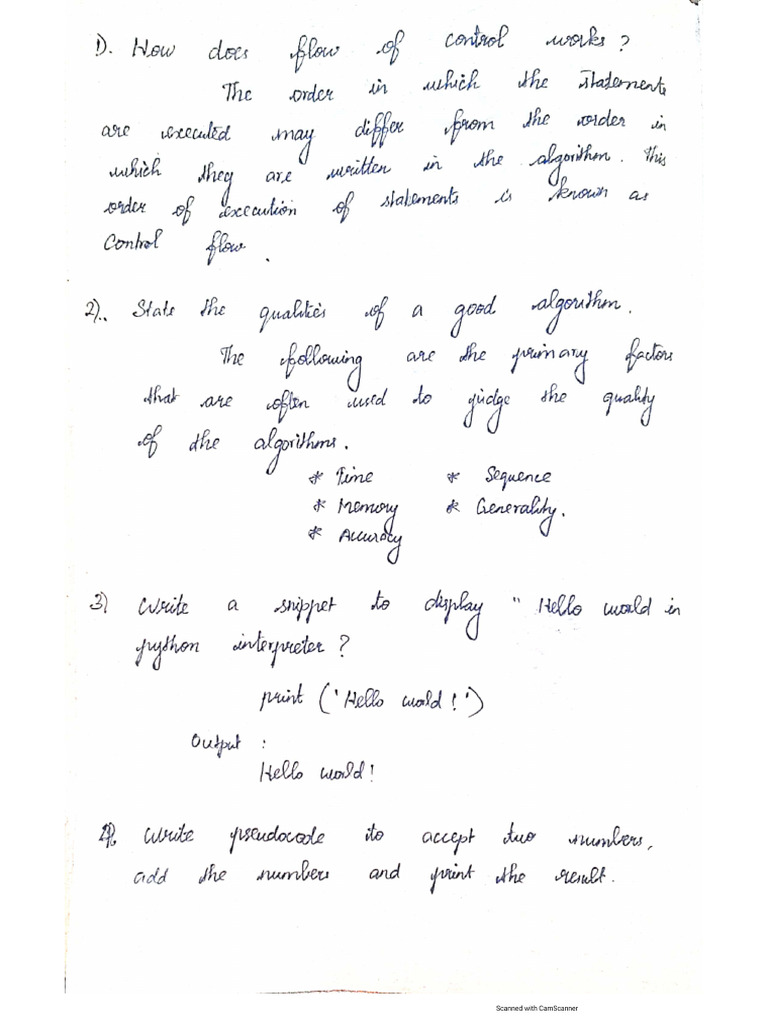 1). How does flow of control works?
The order in which the statements
are executed may differ from the order in
which they are written in the algorithm. This
order of execution of statements is known as
Control flow.
2). State the qualities of a good algorithm.
The following are the primary factors
that are often used to judge the quality
of the algorithms.
* Time * Sequence
* Memory * Generality.
* Accuracy
3) Write a snippet to display "Hello world in
python interpreter?
print ('Hello world!')
Output :
Hello world!
4). Write pseudocode to accept two numbers,
add the numbers and print the result.
Scanned with CamScanner